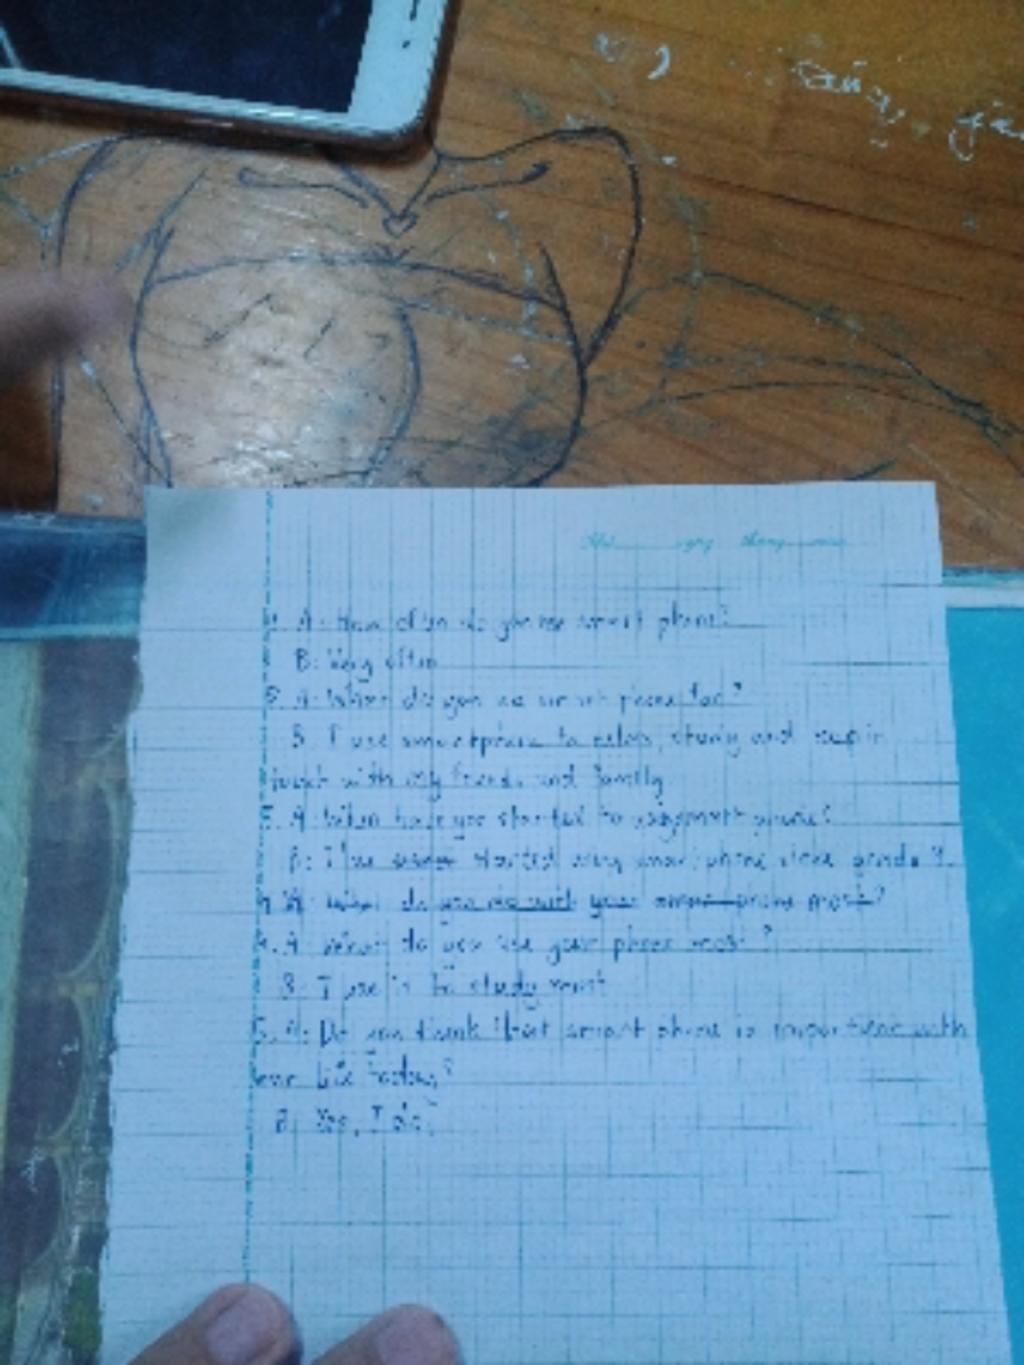 Thứ ngày tháng năm
1. A: How often do you use smart phone?
B: Very often
2. A: What do you use smart phone for?
B: I use smartphone to relax, study and keep in
touch with my friends and family
3. A: When have you started to using smart phone?
B: I've started using smart phone since grade 9.
4. A: What do you do with your smart phone most?
4. A: What do you use your phone most?
B: I use it to study most
5. A: Do you think that smart phone is important with
our life today?
B: Yes, I do.